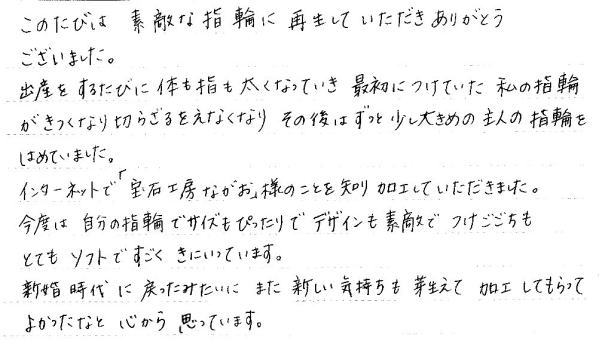 このたびは 素敵な指輪に 再生して いただき ありがとう
ございました。
出産をするたびに 体も指も 太くなっていき 最初に つけていた 私の指輪
がきつくなり切らざるをえなくなり その後は ずっと 少し大きめの 主人の指輪を
はめていました。
インターネットで「宝石工房ながお」様のことを知り 加工していただきました。
今度は 自分の指輪でサイズもぴったりで デザインも素敵で つけごごちも
とても ソフトで すごく きにいっています。
新婚時代に 戻ったみたいに また 新しい気持ちも 芽生えて 加工 してもらって
よかったなと 心から 思っています。